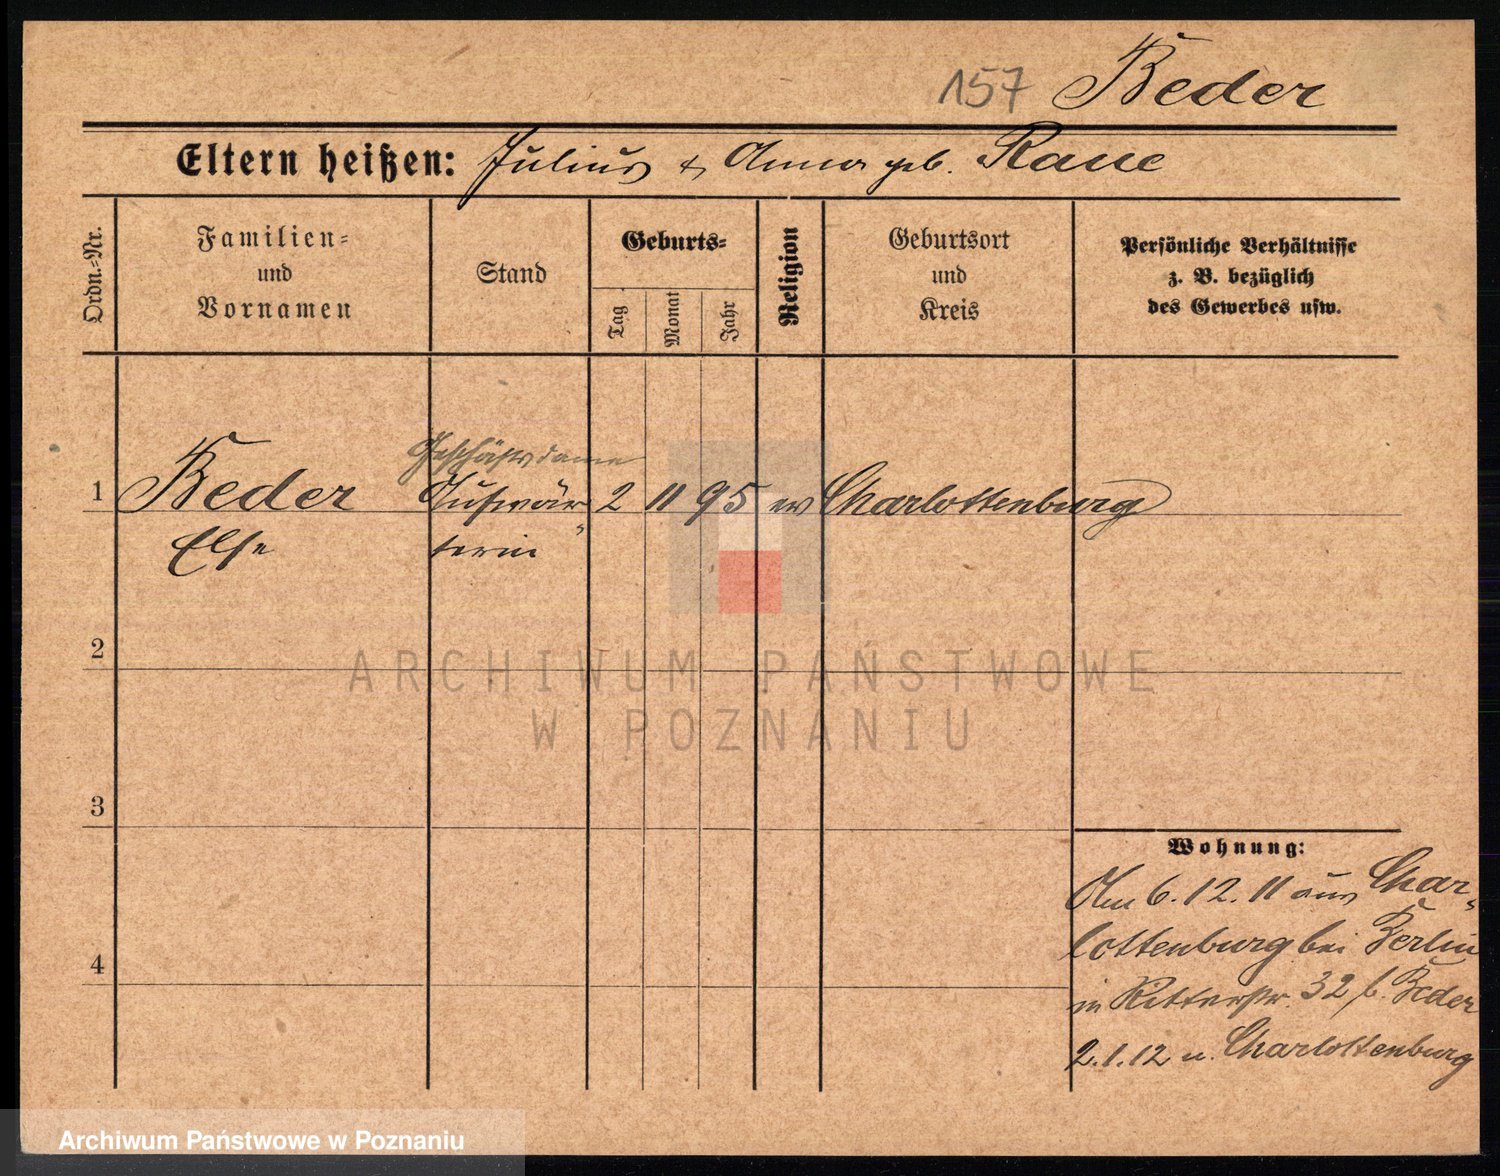 157 Beder
Eltern heißen: Julius & Anna geb. Raue
Ordn.-Nr.
Familien-
und
Vornamen
Stand
Geburts-
Tag
Monat
Jahr
Religion
Geburtsort
und
Kreis
Persönliche Verhältnisse
z. B. bezüglich
des Gewerbes usw.
Geschäftsdame
1 Beder Aufwär- 2 11 95 ev Charlottenburg
Else terin
2
ARCHIWUM PAŃSTWOWE
W POZNANIU
3
Wohnung:
Am 6.12.11 aus Char-
lottenburg bei Berlin
4
in Ritterstr. 32 b. Beder
2.1.12 n. Charlottenburg
Archiwum Państwowe w Poznaniu